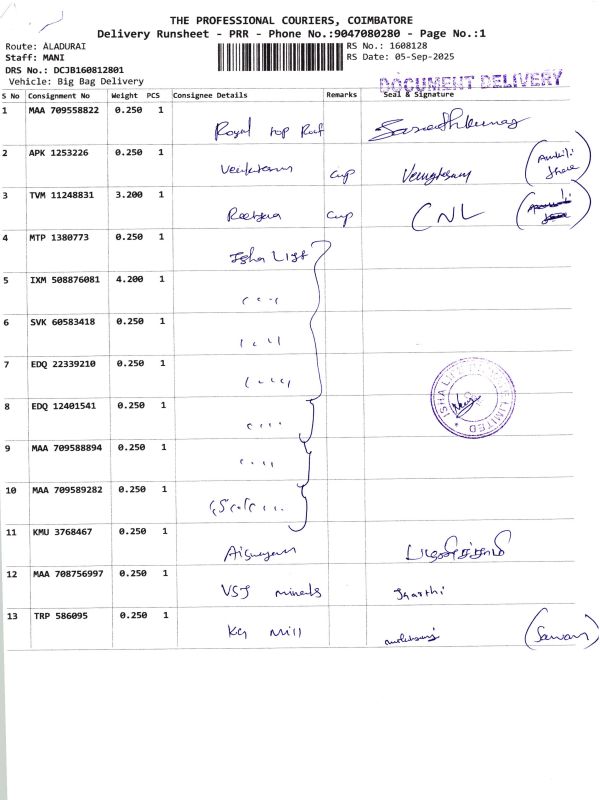 THE PROFESSIONAL COURIERS, COIMBATORE
Delivery Runsheet - PRR - Phone No.:9047080280 - Page No.:1
Route: ALADURAI RS No.: 1608128
Staff: MANI RS Date: 05-Sep-2025
DRS No.: DCJB160812801
Vehicle: Big Bag Delivery
DOCUMENT DELIVERY
S No Consignment No Weight PCS Consignee Details Remarks Seal & Signature
1 MAA 709558822 0.250 1 Royal top Roof
2 APK 1253226 0.250 1 cup
3 TVM 11248831 3.200 1 cup CNL
4 MTP 1380773 0.250 1 Isha Life
5 IXM 508876081 4.200 1 " "
6 SVK 60583418 0.250 1 " "
7 EDQ 22339210 0.250 1 " "
8 EDQ 12401541 0.250 1 " "
ISHA LIFE PRIVATE LIMITED
9 MAA 709588894 0.250 1 " "
10 MAA 709589282 0.250 1
11 KMU 3768467 0.250 1
12 MAA 708756997 0.250 1 VSJ minerals
13 TRP 586095 0.250 1 KG Mill (Sawan)